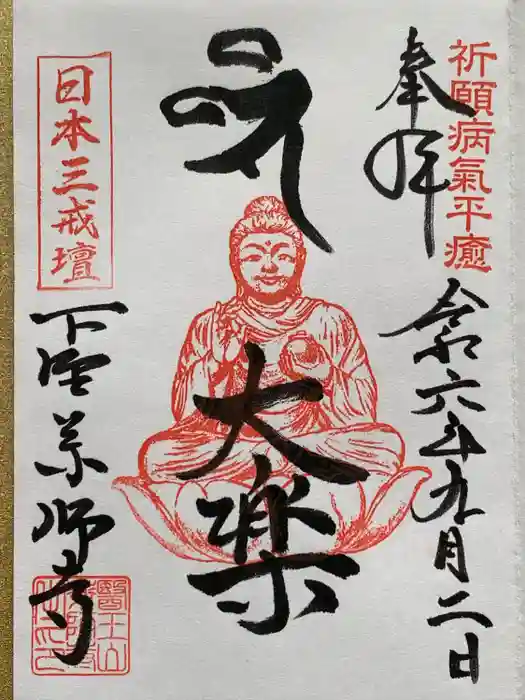 祈願病氣平癒
奉拝
令和六年九月二日
大楽
日本三戒壇
下野薬師寺